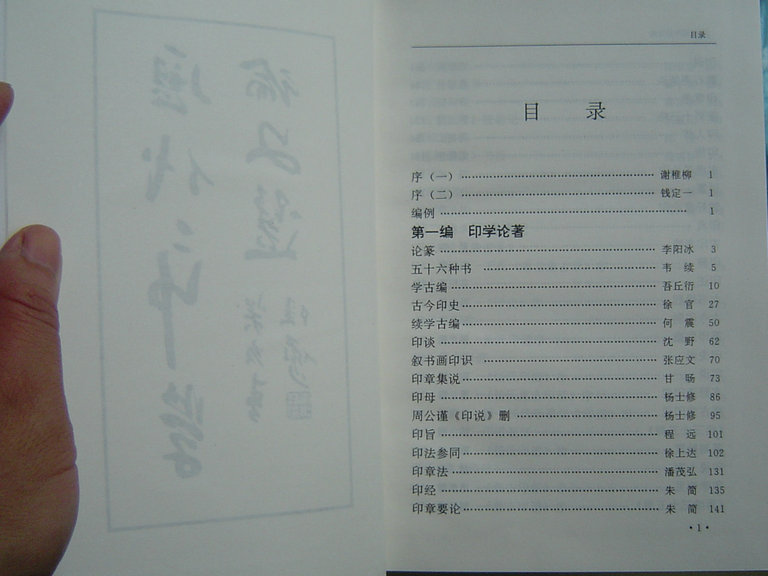 目录
目 录
序（一）……谢稚柳 1
序（二）……钱定一 1
编例……1
第一编 印学论著
论篆……李阳冰 3
五十六种书……韦 续 5
学古编……吾丘衍 10
古今印史……徐 官 27
续学古编……何 震 50
印谈……沈 野 62
叙书画印识……张应文 70
印章集说……甘 旸 73
印母……杨士修 86
周公谨《印说》删……杨士修 95
印旨……程 远 101
印法参同……徐上达 102
印章法……潘茂弘 131
印经……朱 简 135
印章要论……朱 简 141
·1·